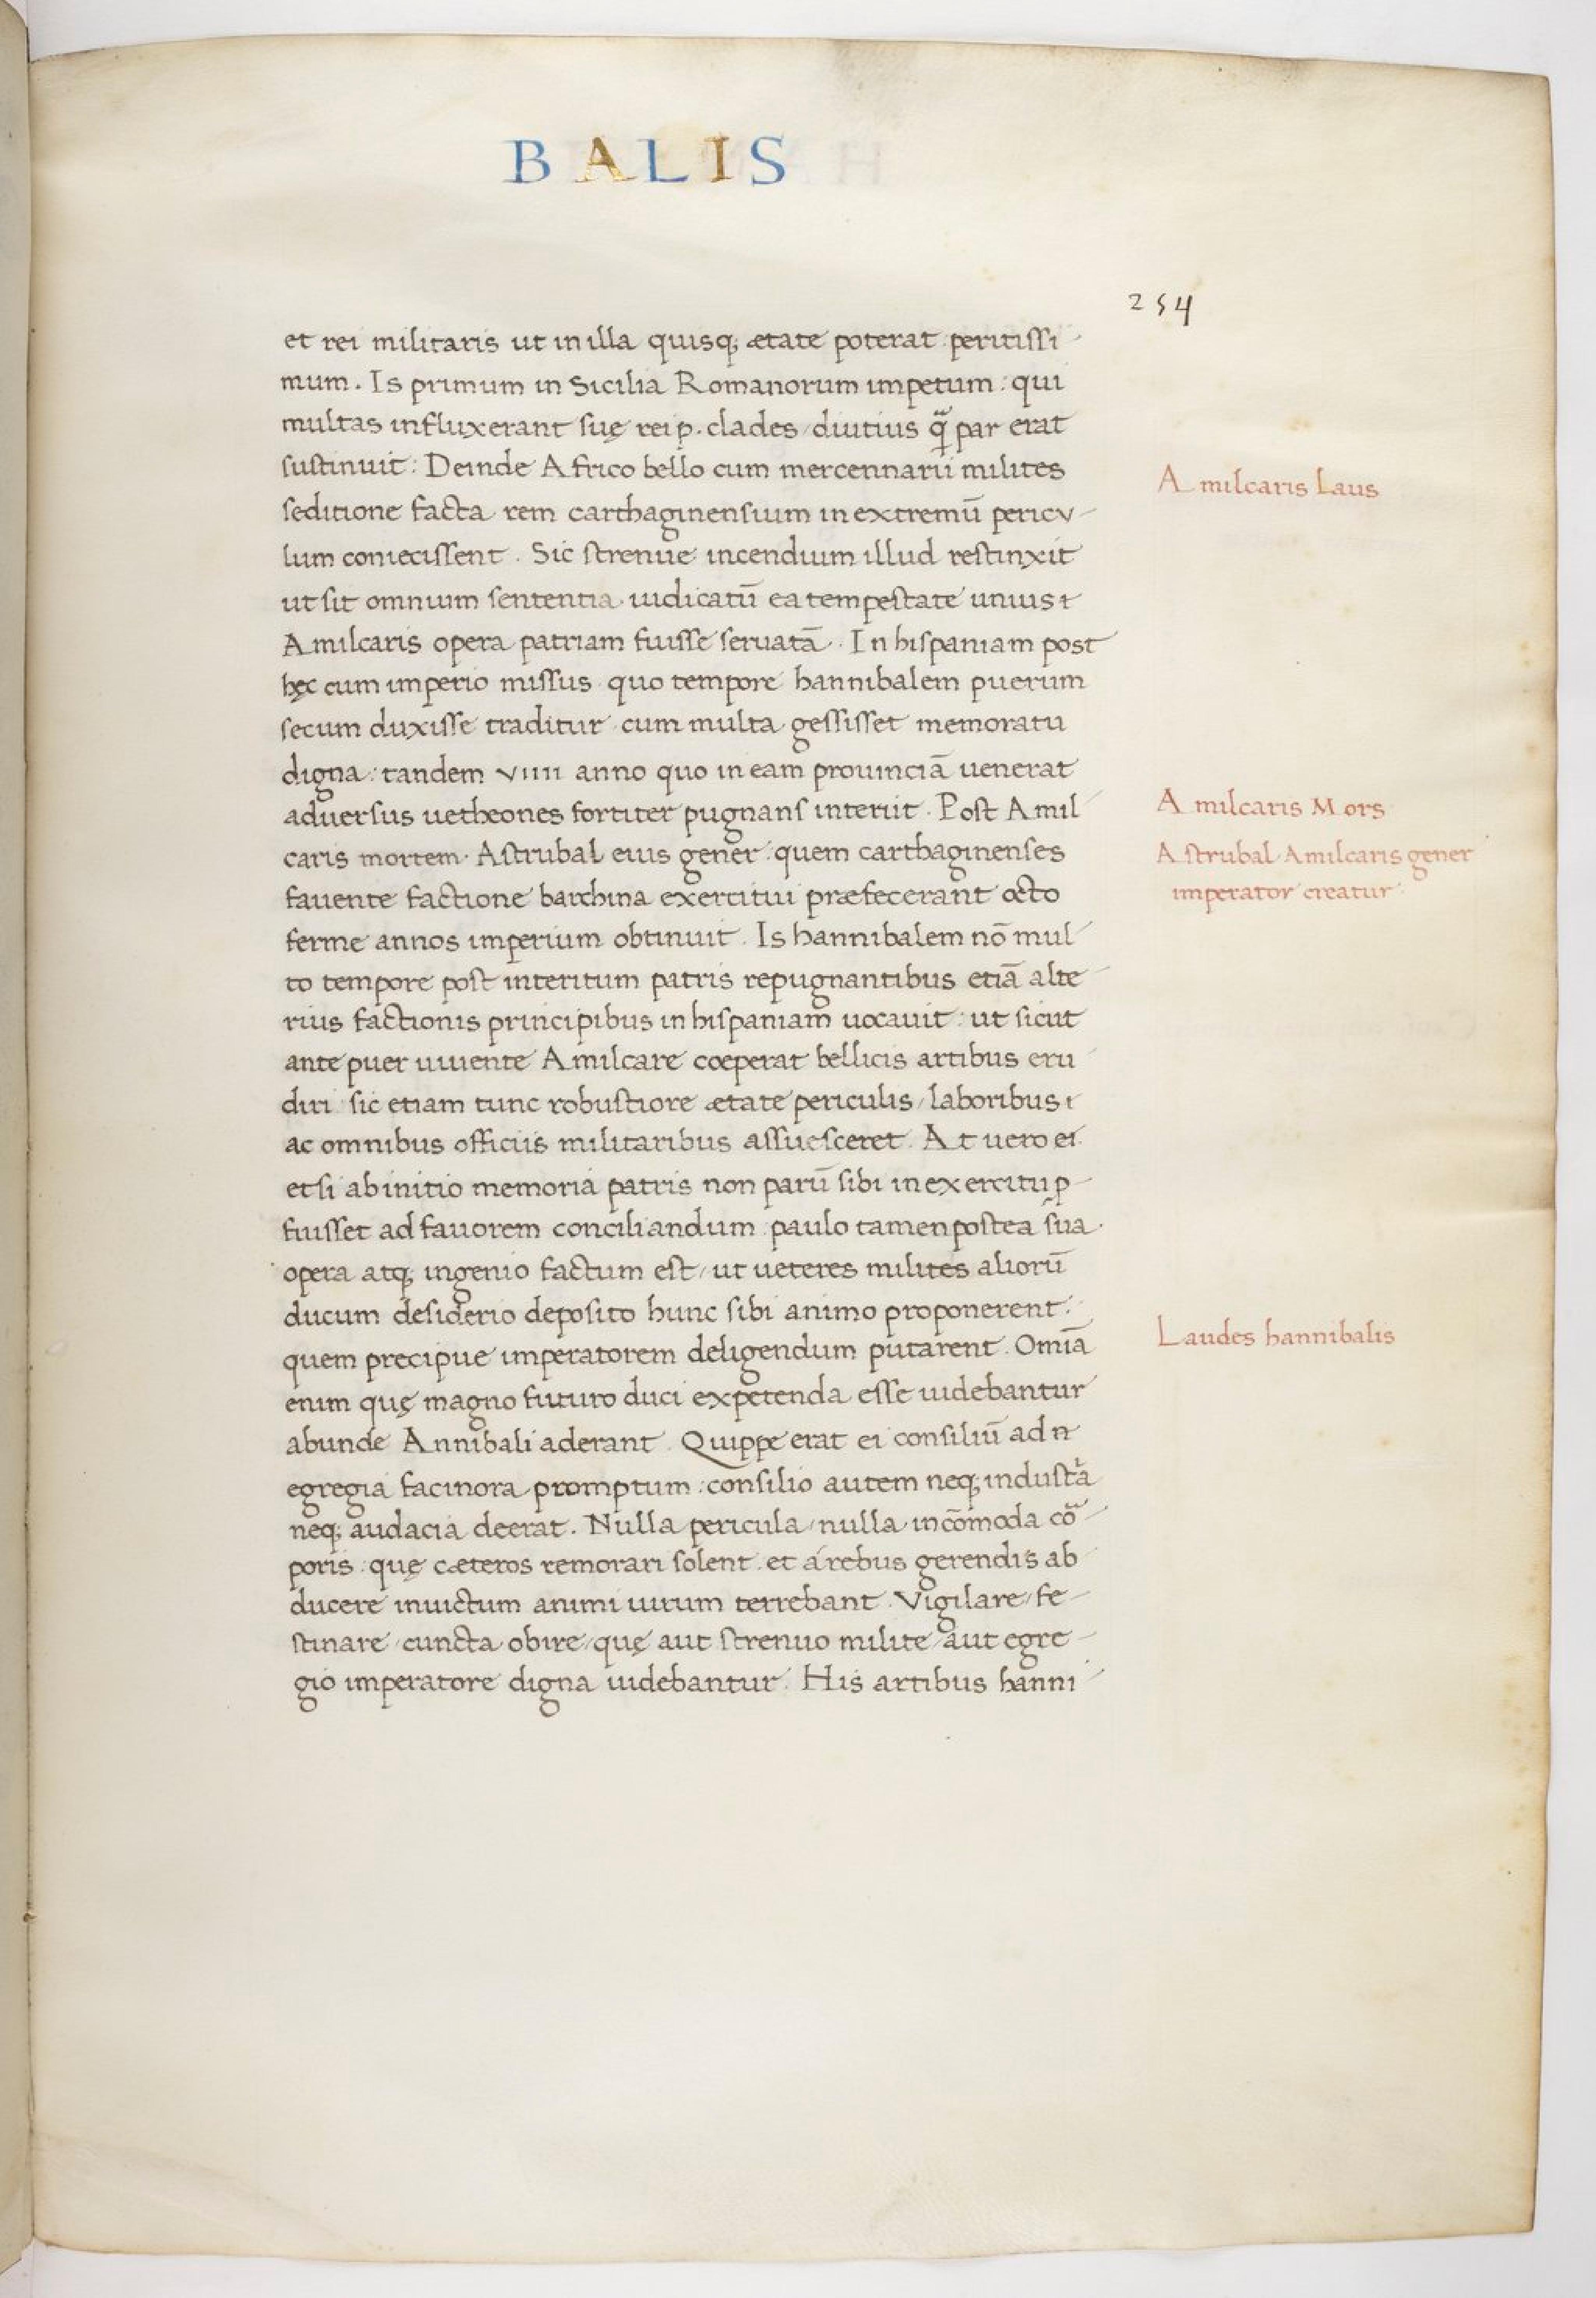 BALIS
254
et rei militaris ut in illa quisq; ætate poterat peritissi-
mum. Is primum in Sicilia Romanorum impetum: qui
multas influxerant suę rei p. clades, diutius q̃ par erat
sustinuit: Deinde Africo bello cum mercennarii milites
seditione facta rem carthaginensium in extremū pericu-
lum coniecissent. Sic strenue incendium illud restinxit
ut sit omnium sententia iudicatū ea tempestate unius
Amilcaris opera patriam fuisse seruatā. In hispaniam post
hęc cum imperio missus quo tempore hannibalem puerum
secum duxisse traditur cum multa gessisset memoratu
digna: tandem VIIII anno quo in eam prouinciā uenerat
aduersus uetheones fortiter pugnans interiit. Post Amil-
caris mortem Astrubal eius gener: quem carthaginenses
fauente factione barchina exercitui præfecerant octo
ferme annos imperium obtinuit. Is hannibalem nō mul-
to tempore post interitum patris repugnantibus etiā alte-
rius factionis principibus in hispaniam uocauit: ut sicut
ante puer uiuente Amilcare cœperat bellicis artibus eru-
diri sic etiam tunc robustiore ætate periculis, laboribus
ac omnibus officiis militaribus assuesceret. At uero ei
etsi ab initio memoria patris non parū sibi in exercitu p-
fuisset ad fauorem conciliandum: paulo tamen postea sua
opera atq; ingenio factum est, ut ueteres milites aliorū
ducum desiderio deposito hunc sibi animo proponerent:
quem precipue imperatorem deligendum putarent. Omīa
enim quę magno futuro duci expetenda esse uidebantur
abunde Annibali aderant. Quippe erat ei consiliū ad
egregia facinora promptum: consilio autem neq; industria
neq; audacia deerat. Nulla pericula, nulla incōmoda cor-
poris: quę cæteros remorari solent et á rebus gerendis ab-
ducere inuictum animi uirum terrebant. Vigilare, fe-
stinare, cuncta obire, quę aut strenuo milite, aut egre-
gio imperatore digna uidebantur. His artibus hanni-
Amilcaris Laus
Amilcaris Mors
Astrubal Amilcaris gener
imperator creatur:
Laudes hannibalis